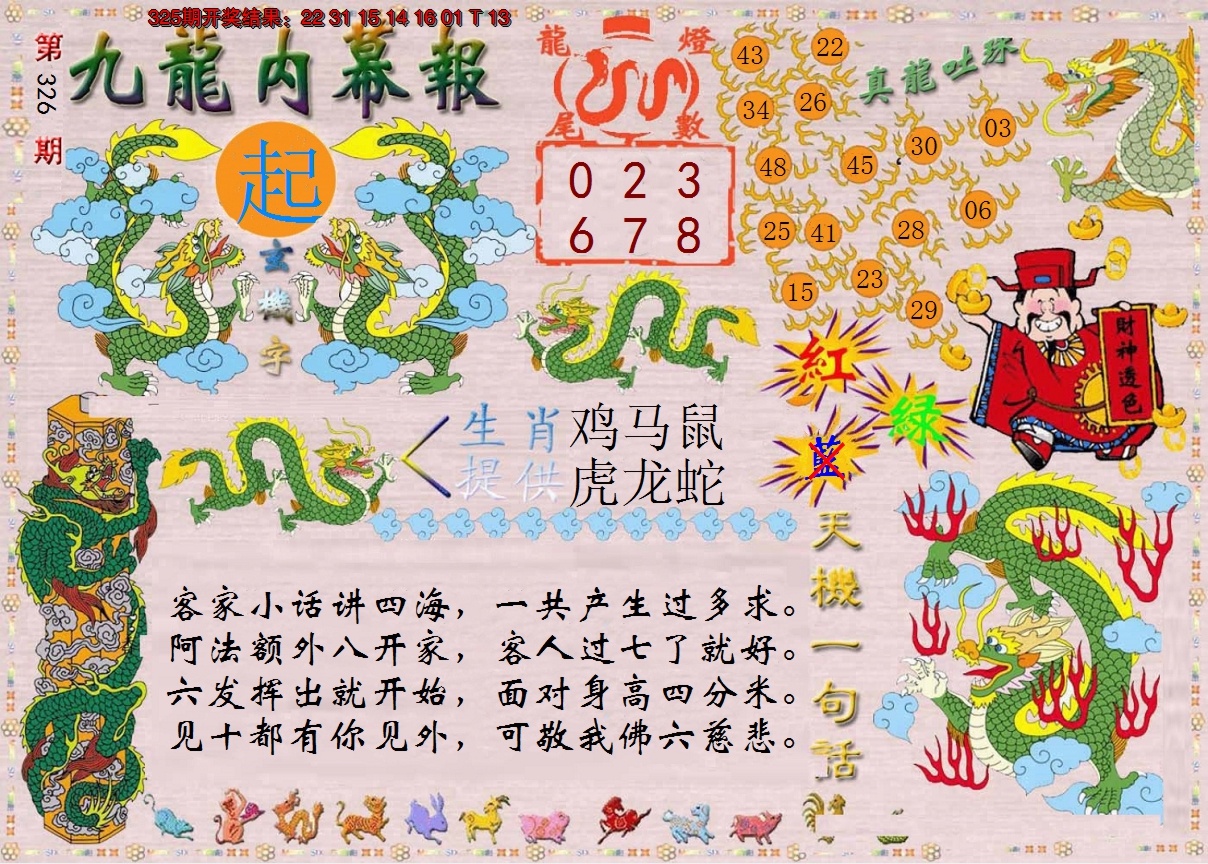 325期开奖结果：22 31 15 14 16 01 T 13
第326期
九龍内幕報
起
玄機字
龍燈
尾數
0 2 3
6 7 8
真龍吐珠
43
22
34
26
03
30
48
45
06
25
41
28
23
15
29
財神透色
紅
綠
藍
生肖 鸡马鼠
提供 虎龙蛇
天機一句話
客家小话讲四海，一共产生过多求。
阿法额外八开家，客人过七了就好。
六发挥出就开始，面对身高四分米。
见十都有你见外，可敬我佛六慈悲。